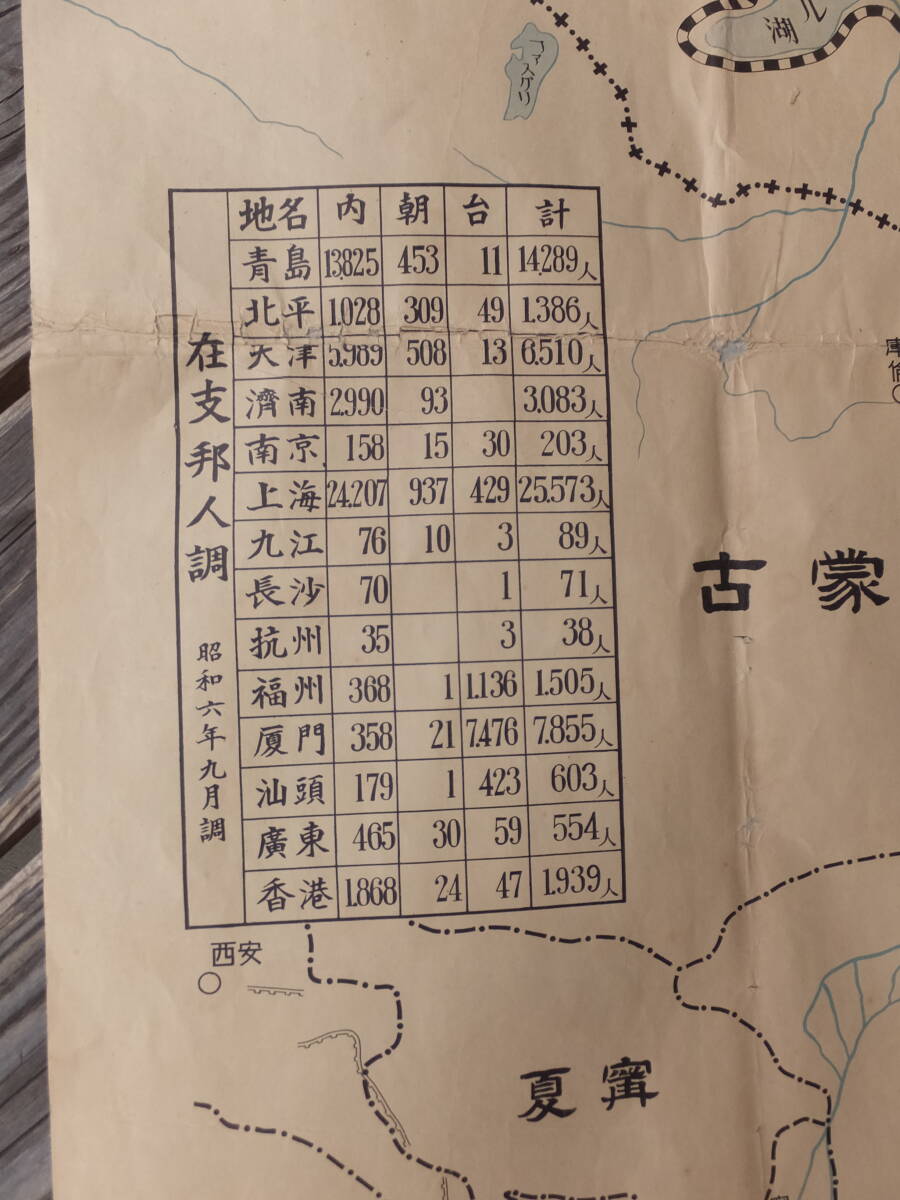 コソスグリ
ル
湖
在支邦人調
昭和六年九月調
地名 内 朝 台 計
青島 13.825 453 11 14.289人
北平 1.028 309 49 1.386人
天津 5.989 508 13 6.510人
濟南 2.990 93 3.083人
南京 158 15 30 203人
上海 24.207 937 429 25.573人
九江 76 10 3 89人
長沙 70 1 71人
抗州 35 3 38人
福州 368 1 1.136 1.505人
厦門 358 21 7.476 7.855人
汕頭 179 1 423 603人
廣東 465 30 59 554人
香港 1.868 24 47 1.939人
庫
蒙古
西安
甯夏